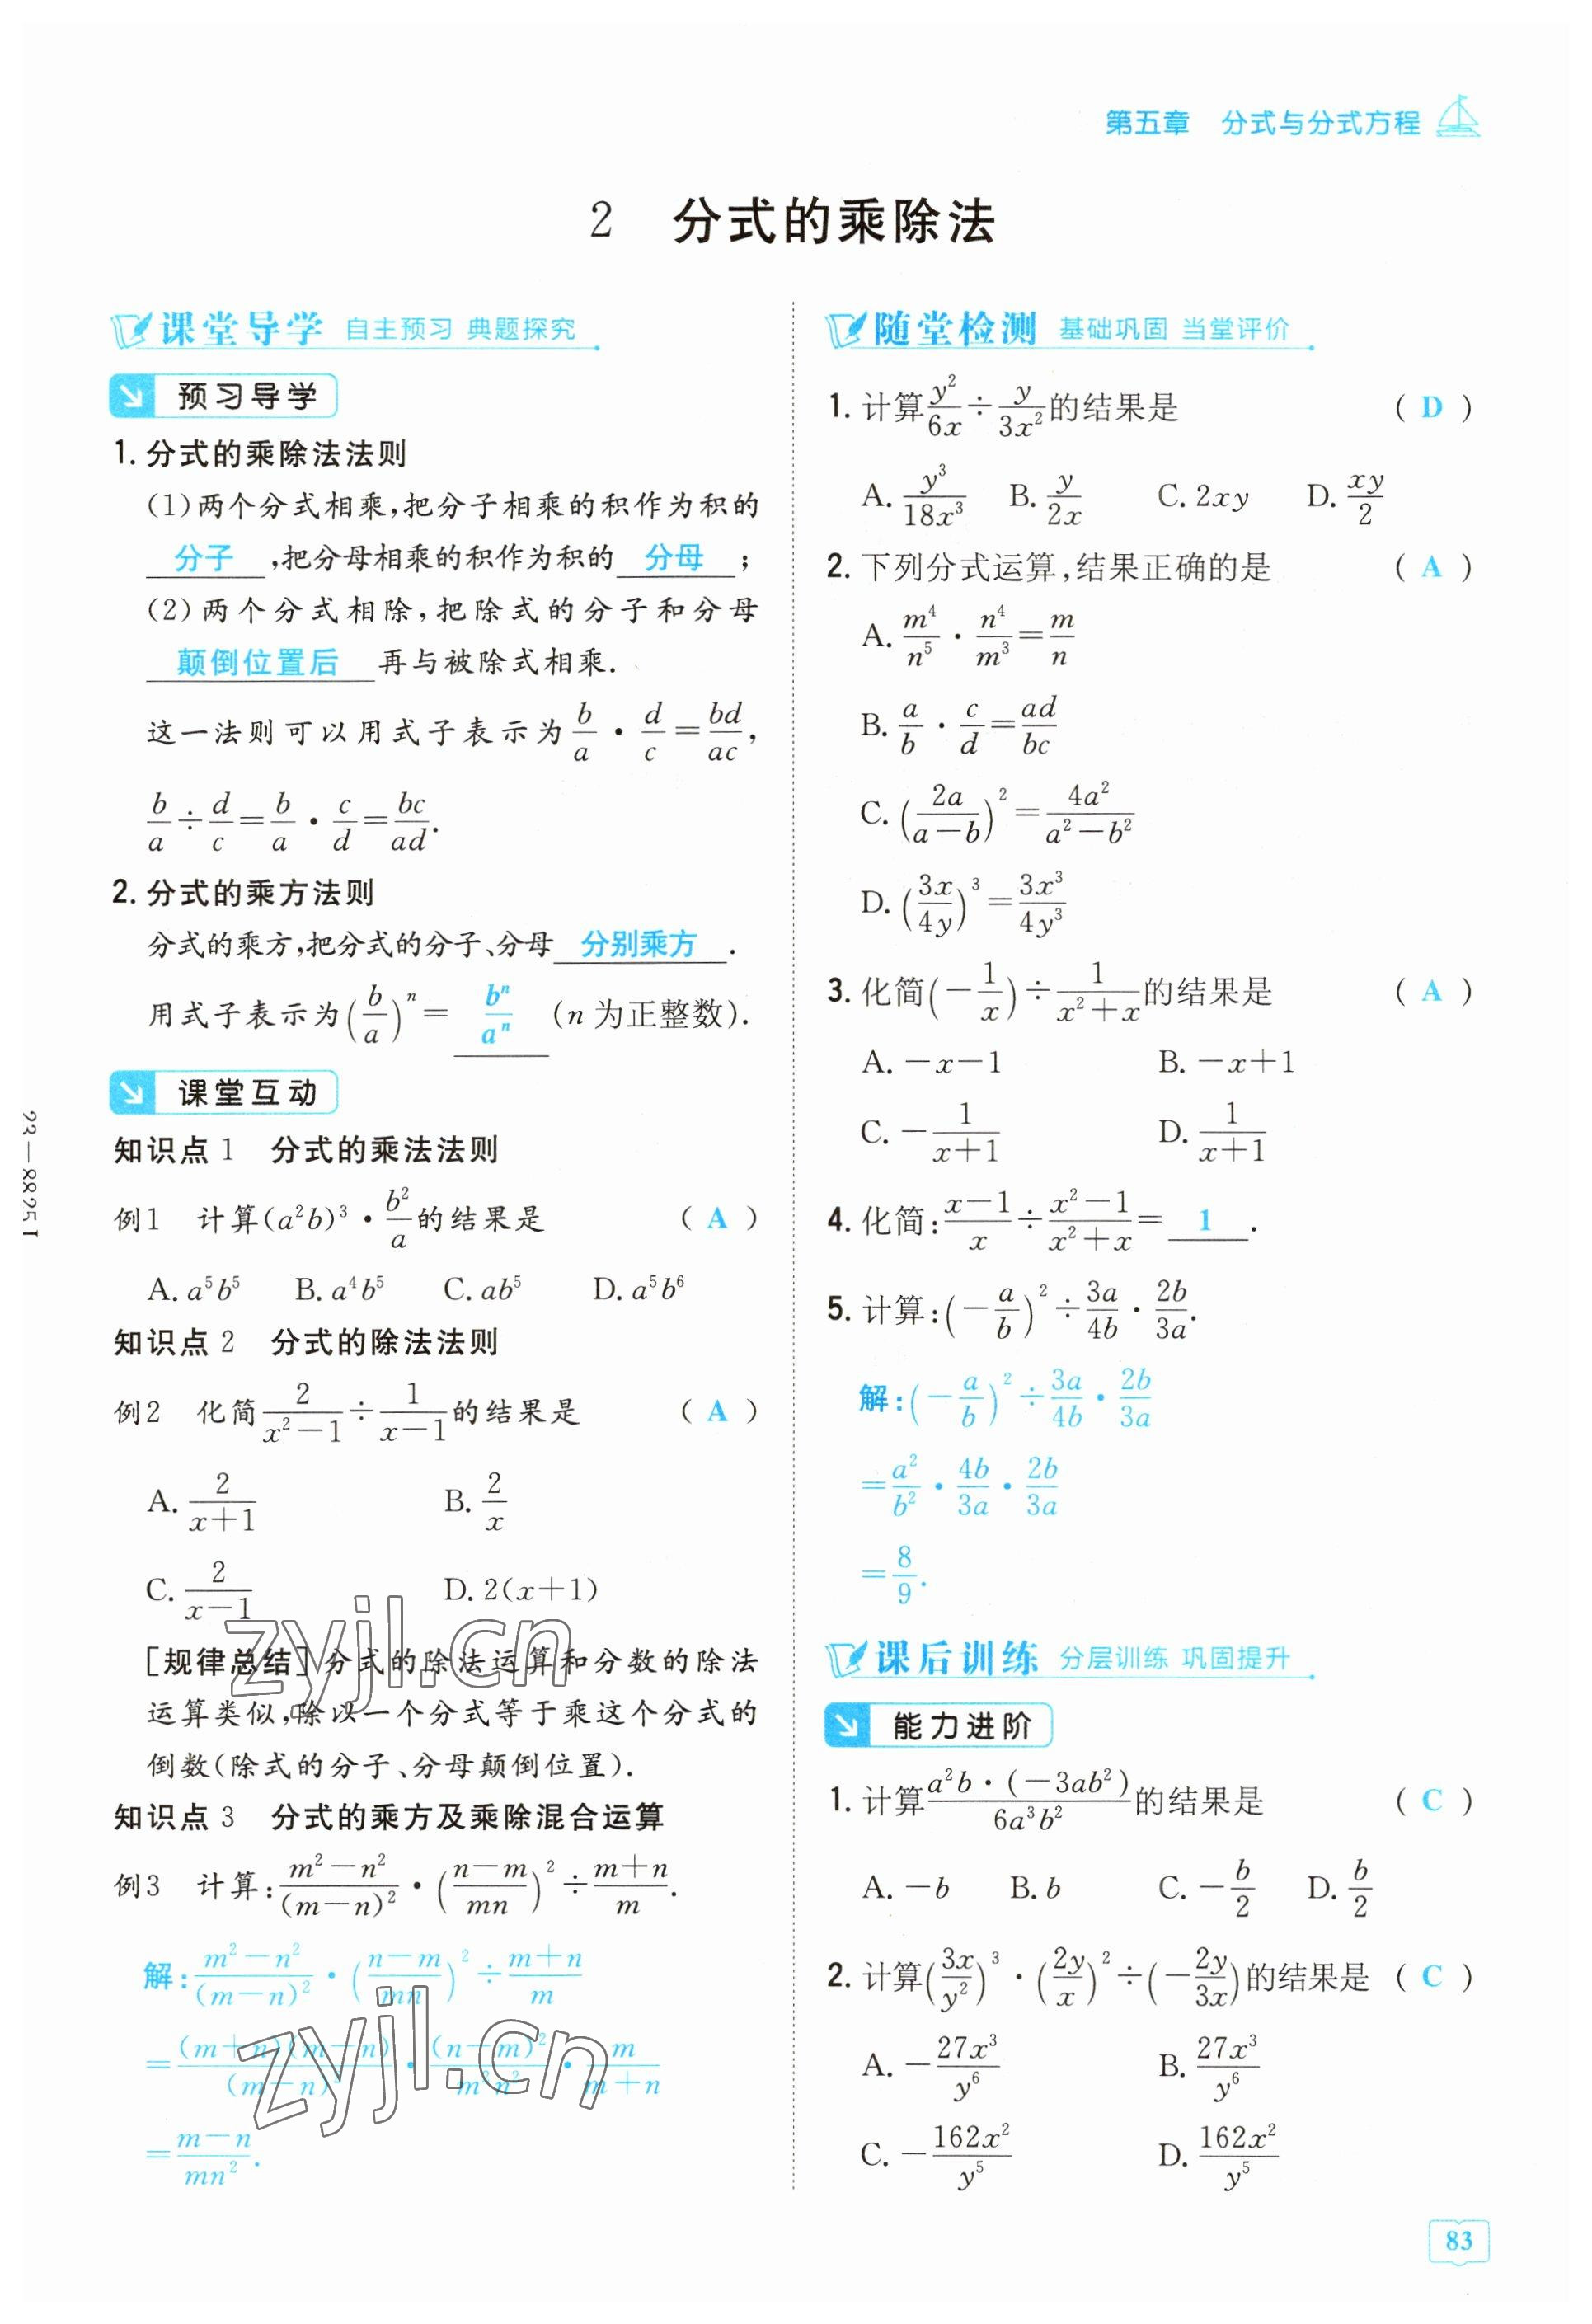 第五章 分式与分式方程
2 分式的乘除法
课堂导学 自主预习 典题探究
预习导学
1. 分式的乘除法法则
(1)两个分式相乘,把分子相乘的积作为积的
分子,把分母相乘的积作为积的 分母;
(2)两个分式相除,把除式的分子和分母
颠倒位置后 再与被除式相乘.
这一法则可以用式子表示为 b/a · d/c = bd/ac,
b/a ÷ d/c = b/a · c/d = bc/ad.
2. 分式的乘方法则
分式的乘方,把分式的分子、分母 分别乘方.
用式子表示为(b/a)ⁿ = bⁿ/aⁿ (n 为正整数).
课堂互动
知识点 1 分式的乘法法则
例1 计算(a²b)³ · b²/a 的结果是 ( A )
A. a⁵b⁵ B. a⁴b⁵ C. ab⁵ D. a⁵b⁶
知识点 2 分式的除法法则
例2 化简 2/(x²-1) ÷ 1/(x-1) 的结果是 ( A )
A. 2/(x+1) B. 2/x
C. 2/(x-1) D. 2(x+1)
[规律总结]分式的除法运算和分数的除法
运算类似,除以一个分式等于乘这个分式的
倒数(除式的分子、分母颠倒位置).
知识点 3 分式的乘方及乘除混合运算
例3 计算: (m²-n²)/(m-n)² · ((n-m)/mn)² ÷ (m+n)/m.
解: (m²-n²)/(m-n)² · ((n-m)/mn)² ÷ (m+n)/m
= (m+n)(m-n)/(m-n)² · (n-m)²/m²n² · m/(m+n)
= (m-n)/mn².
随堂检测 基础巩固 当堂评价
1. 计算 y²/6x ÷ y/3x² 的结果是 ( D )
A. y³/18x³ B. y/2x C. 2xy D. xy/2
2. 下列分式运算,结果正确的是 ( A )
A. m⁴/n⁵ · n⁴/m³ = m/n
B. a/b · c/d = ad/bc
C. (2a/(a-b))² = 4a²/(a²-b²)
D. (3x/4y)³ = 3x³/4y³
3. 化简(-1/x) ÷ 1/(x²+x) 的结果是 ( A )
A. -x-1 B. -x+1
C. -1/(x+1) D. 1/(x+1)
4. 化简: (x-1)/x ÷ (x²-1)/(x²+x) = 1.
5. 计算: (-a/b)² ÷ 3a/4b · 2b/3a.
解: (-a/b)² ÷ 3a/4b · 2b/3a
= a²/b² · 4b/3a · 2b/3a
= 8/9.
课后训练 分层训练 巩固提升
能力进阶
1. 计算 a²b·(-3ab²)/6a³b² 的结果是 ( C )
A. -b B. b C. -b/2 D. b/2
2. 计算(3x/y²)³ · (2y/x)² ÷ (-2y/3x)的结果是 ( C )
A. -27x³/y⁶ B. 27x³/y⁶
C. -162x²/y⁵ D. 162x²/y⁵
83
zyjl.cn
zyjl.cn